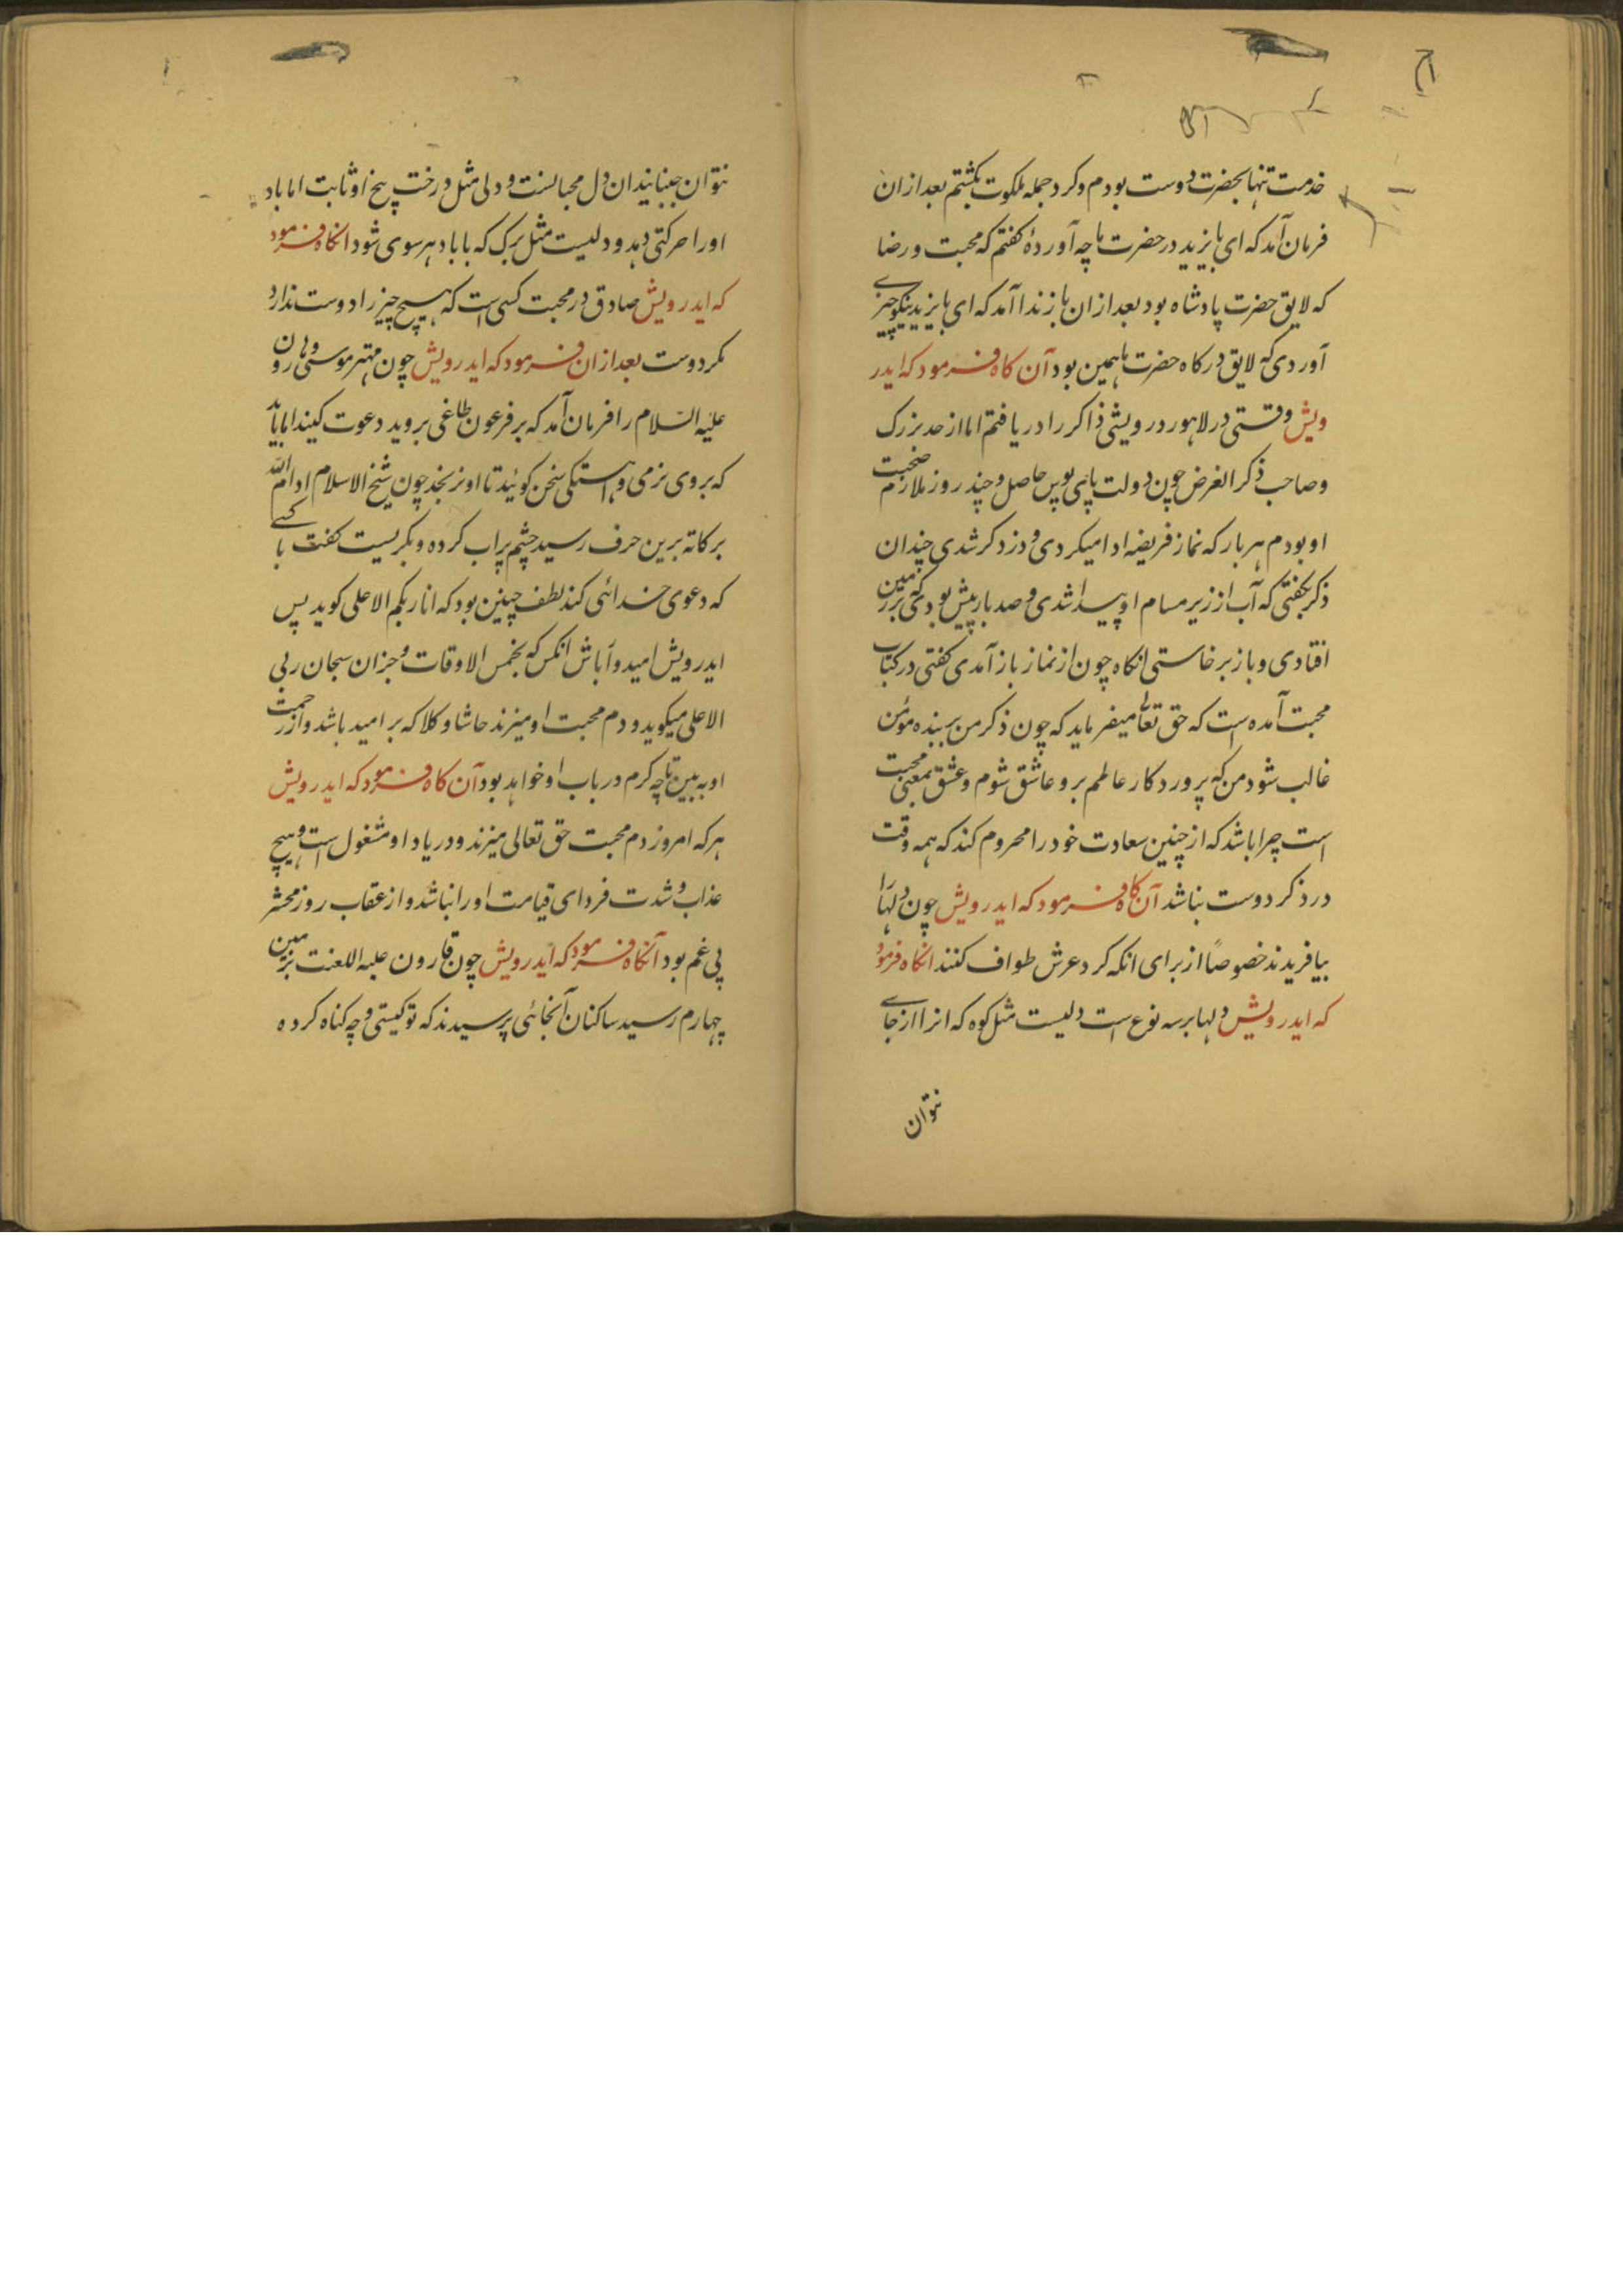 خدمت تنها بحضرت دوست بودم و کرد جمله ملکوت بکشتم بعد ازان
فرمان آمد که ای بایزید در حضرت ما چه آوردهٔ کفتم که محبت و رضا
که لایق حضرت پادشاه بود بعد ازان باز ندا آمد که ای بایزید نیکو چیزے
آوردی که لایق درکاه حضرت ما همین بود آن کاه فرمود که ایدر
ویش وقتی در لاهور درویشی ذاکر را دریافتم اما از حد بزرک
و صاحب ذکر الغرض چون دولت پای بوس حاصل و چند روز ملازم صحبت
او بودم هر بار که نماز فریضه ادا میکردی و در ذکر شدی چندان
ذکر بکفتی که آب از زیر مسام او پیدا شدی و صد بار بیش بودی که بر زمین
افتادی و باز برخاستی انکاه چون از نماز باز آمدی کفتی در کتاب
محبت آمده است که حق تعالی میفرماید که چون ذکر من بر بنده مؤمن
غالب شود من که پروردکار عالمم برو عاشق شوم و عشق بمعنی محبت
است چرا باشد که از چنین سعادت خود را محروم کند که همه وقت
در ذکر دوست نباشد آن کاه فرمود که ایدرویش چون دلها را
بیافریدند خصوصاً از برای انکه کرد عرش طواف کنند انکاه فرمود
که ایدرویش دلها بر سه نوع است دلیست مثل کوه که انرا از جاے
نتوان
نتوان جنبانیدان دل محبانست و دلی مثل درخت بیخ او ثابت اما باد
اورا حرکتی دهد و دلیست مثل برک که با باد هر سوی شود انکاه فرمود
که ایدرویش صادق در محبت کسی است که هیچ چیز را دوست ندارد
مکر دوست بعد ازان فرمود که ایدرویش چون مهتر موسی و هارون
علیه السلام را فرمان آمد که بر فرعون طاغی بروید دعوت کنید اما باید
که بروی نرمی و اهستکی سخن کوئید تا او نرنجد چون شیخ الاسلام ادام الله
برکاته برین حرف رسید چشم پر اب کرده و بکریست کفت با کسے
که دعوی خدائی کند لطف چنین بود که انا ربکم الاعلی کوید پس
ایدرویش امیدوار باش انکس که بخمس الاوقات و جزان سبحان ربی
الاعلی میکوید و دم محبت او میزند حاشا و کلا که بر امید باشد و از رحمت
او به بین تا چه کرم در باب او خواهد بود آن کاه فرمود که ایدرویش
هر که امروز دم محبت حق تعالی میزند و در یاد او مشغول است و هیچ
عذاب و شدت فردای قیامت اورا نباشد و از عقاب روز محشر
بی غم بود آنکاه فرمود که ایدرویش چون قارون علیه اللعنت بزمین
چهارم رسید ساکنان آنجائی پرسیدند که تو کیستی و چه کناه کرده